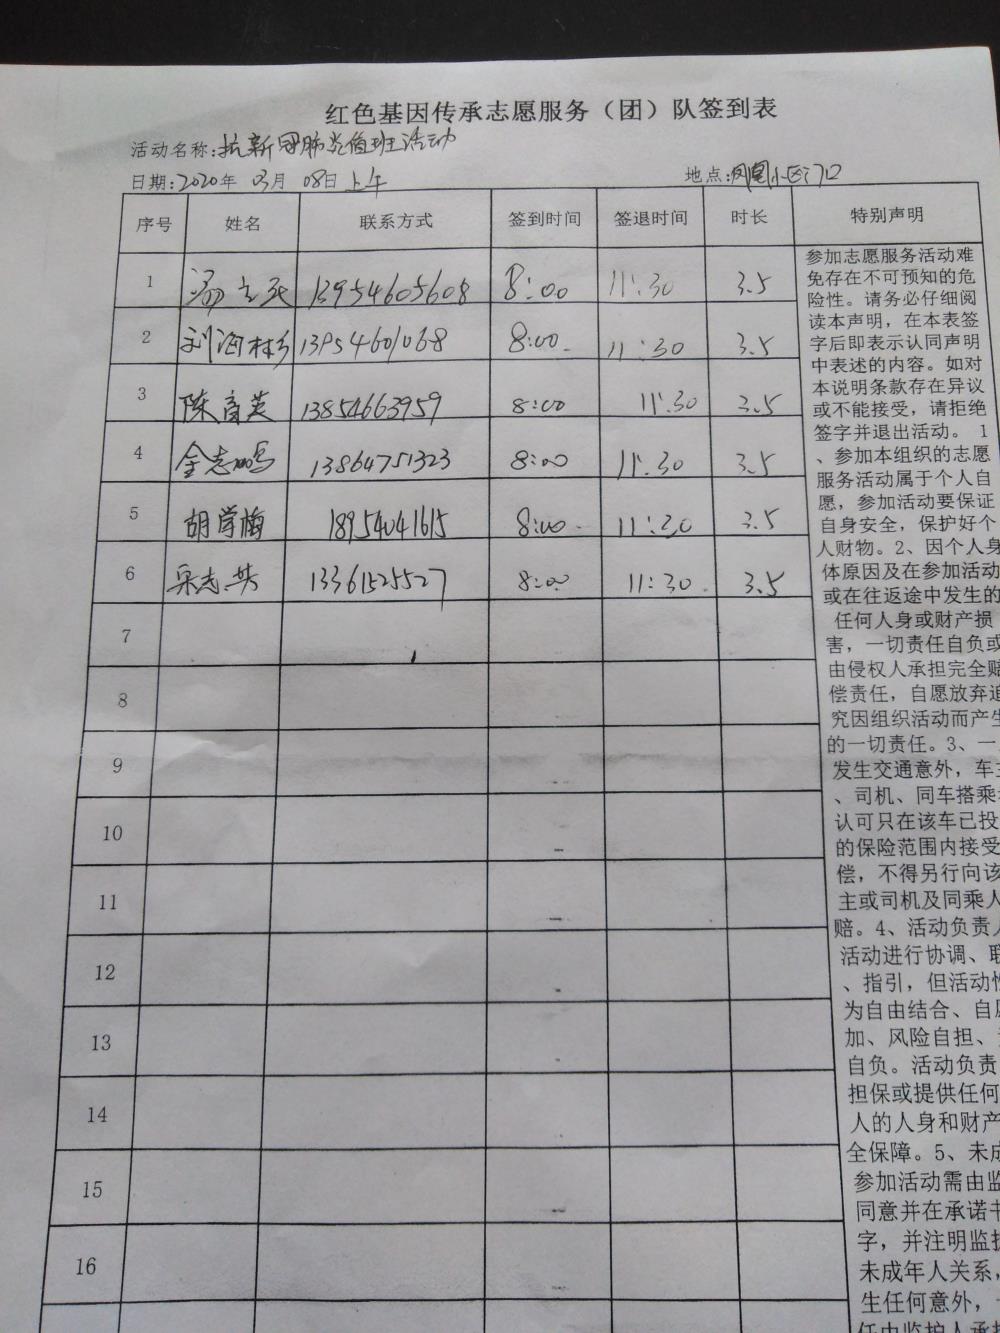 红色基因传承志愿服务（团）队签到表
活动名称:抗新冠肺炎值班活动
日期:2020年 03月 08日上午 地点:凤凰小区门口
序号 姓名 联系方式 签到时间 签退时间 时长 特别声明
1 13954605608 8:00 11:30 3.5
2 刘海林 13954601068 8:00 11:30 3.5
3 陈育英 13854663959 8:00 11:30 3.5
4 金志鸣 13864751323 8:00 11:30 3.5
5 胡学梅 18954041615 8:00 11:30 3.5
6 13361525527 8:00 11:30 3.5
7
8
9
10
11
12
13
14
15
16
参加志愿服务活动难
免存在不可预知的危
险性。请务必仔细阅
读本声明，在本表签
字后即表示认同声明
中表述的内容。如对
本说明条款存在异议
或不能接受，请拒绝
签字并退出活动。 1
、参加本组织的志愿
服务活动属于个人自
愿，参加活动要保证
自身安全，保护好个
人财物。2、因个人身
体原因及在参加活动
或在往返途中发生的
任何人身或财产损
害，一切责任自负或
由侵权人承担完全赔
偿责任，自愿放弃追
究因组织活动而产生
的一切责任。3、一
发生交通意外，车主
、司机、同车搭乘
认可只在该车已投
的保险范围内接受
偿，不得另行向该
主或司机及同乘人
赔。4、活动负责人
活动进行协调、联
、指引，但活动性
为自由结合、自愿
加、风险自担、
自负。活动负责
担保或提供任何
人的人身和财产
全保障。5、未成
参加活动需由监
同意并在承诺书
字，并注明监护
未成年人关系，
生任何意外，
任由监护人承担